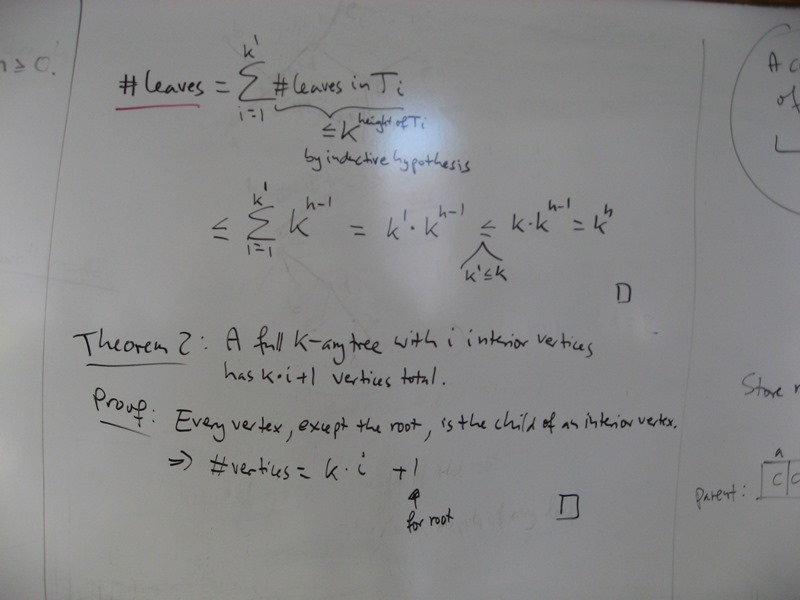 n ≥ 0.
#leaves = k' ∑ i=1 #leaves in Ti
≤ k^height of Ti
by inductive hypothesis
≤ k' ∑ i=1 k^h-1 = k'·k^h-1 ≤ k·k^h-1 = k^h
k' ≤ k
□
Theorem 2: A full k-ary tree with i interior vertices
has k·i+1 vertices total.
Proof: Every vertex, except the root, is the child of an interior vertex.
⇒ #vertices = k·i +1
↑
for root
□
A c
of
Store
a
parent: c